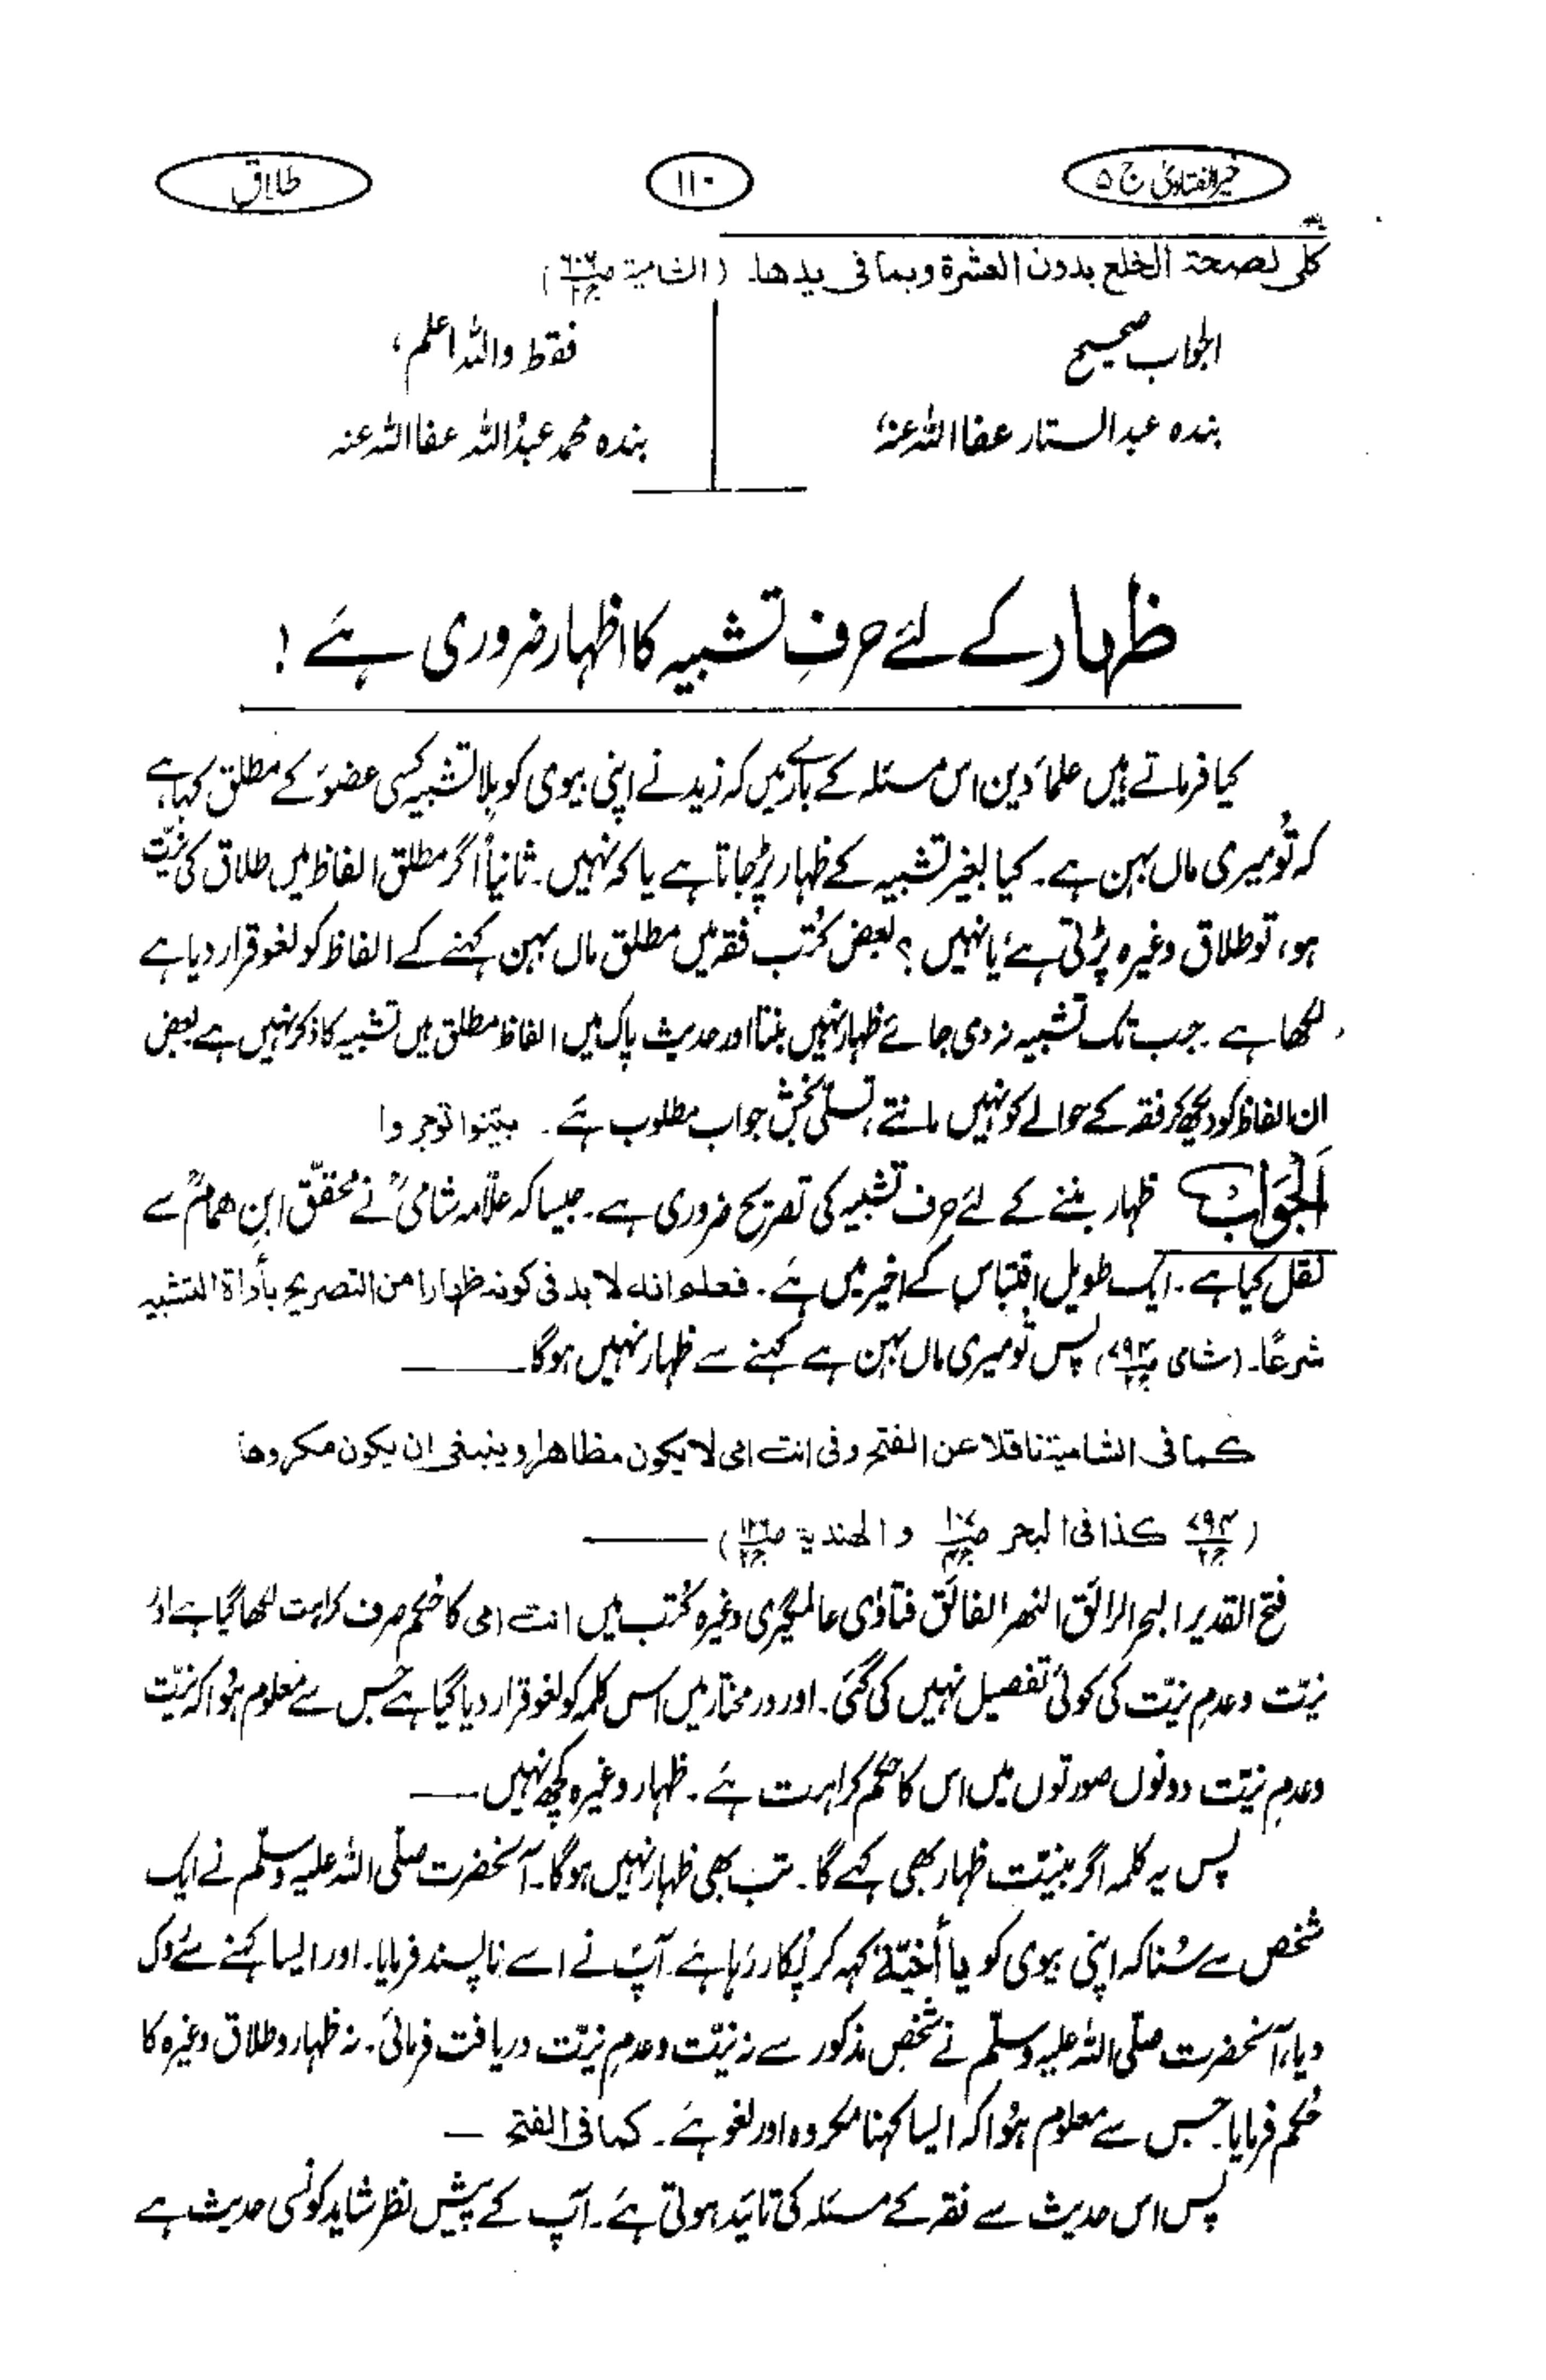 خیر الفتاویٰ ج ۵
۱۱۰
طلاق
کلی لصحة الخلع بدون العشرة وبما فی یدھا۔ (الشامیة ص۶۰۶ ج۲)
الجواب صحیح
بندہ عبد الستار عفا اللہ عنہ،
فقط واللہ اعلم،
بندہ محمد عبد اللہ عفا اللہ عنہ
ظہار کے لئے حرفِ تشبیہ کا اظہار ضروری ہے !
کیا فرماتے ہیں علمائے دین اس مسئلہ کے بارے میں کہ زید نے اپنی بیوی کو بلا تشبیہ کسی عضو کے مطلق کہا ہے
کہ تُو میری ماں بہن ہے۔ کیا بغیر تشبیہ کے ظہار پڑ جاتا ہے یا کہ نہیں۔ ثانیاً اگر مطلق الفاظ میں طلاق کی نیّت
ہو، تو طلاق وغیرہ پڑتی ہے یا نہیں ؟ بعض کُتب فقہ میں مطلق ماں بہن کہنے کے الفاظ کو لغو قرار دیا ہے
لکھا ہے ۔ جب تک تشبیہ نہ دی جائے ظہار نہیں بنتا اور حدیث پاک میں الفاظ مطلق ہیں تشبیہ کا ذکر نہیں ہے بعض
ان الفاظ کو دیکھ کر فقہ کے حوالے کو نہیں مانتے ، تسلی بخش جواب مطلوب ہے ۔ بیّنوا توجروا
اَلجَوَابُ ظہار بننے کے لئے حرف تشبیہ کی تصریح ضروری ہے ۔ جیسا کہ علّامہ شامیؒ نے محقّق ابنِ ھمامؒ سے
نقل کیا ہے ۔ ایک طویل اقتباس کے اخیر میں ہے ۔ فعلم انہ لا بد فی کونہ ظہارا من التصریح بأداة التشبیہ
شرعًا۔ (شامی ص۷۹۴ ج۲) پس تُو میری ماں بہن ہے کہنے سے ظہار نہیں ہوگا۔
کما فی الشامیة ناقلا عن الفتح وفی انت امی لا یکون مظاھرا وینبغی ان یکون مکروھا
(ص۷۹۴ ج۲ کذا فی البحر ص۱۰۷ ج۴ والھندیة ص۱۲۶ ج۲)
فتح القدیر البحر الرائق النھر الفائق فتاوٰی عالمگیری وغیرہ کُتب میں انت امی کا حُکم صرف کراہت لکھا گیا ہے اور
نیّت و عدمِ نیّت کی کوئی تفصیل نہیں کی گئی ۔ اور در مختار میں اس کلمہ کو لغو قرار دیا گیا ہے جس سے معلوم ہُوا کہ نیّت
و عدمِ نیّت دونوں صورتوں میں اس کا حکم کراہت ہے ۔ ظہار وغیرہ کچھ نہیں
پس یہ کلمہ اگر بنیّت ظہار بھی کہے گا ۔ تب بھی ظہار نہیں ہوگا ۔ آنحضرت صلّی اللہ علیہ وسلّم نے ایک
شخص سے سُنا کہ اپنی بیوی کو یا أُخَیَّة کہہ کر پُکار رہا ہے ۔ آپؐ نے اسے ناپسند فرمایا ۔ اور ایسا کہنے سے روک
دیا ، آنحضرت صلّی اللہ علیہ وسلّم نے شخصِ مذکور سے نہ نیّت و عدمِ نیّت دریافت فرمائی ۔ نہ ظہار و طلاق وغیرہ کا
حُکم فرمایا ۔ جس سے معلوم ہُوا کہ ایسا کہنا مکروہ اور لغو ہے ۔ کما فی الفتح ـ
پس اس حدیث سے فقہ کے مسئلہ کی تائید ہوتی ہے ۔ آپ کے پیشِ نظر شاید کونسی حدیث ہے